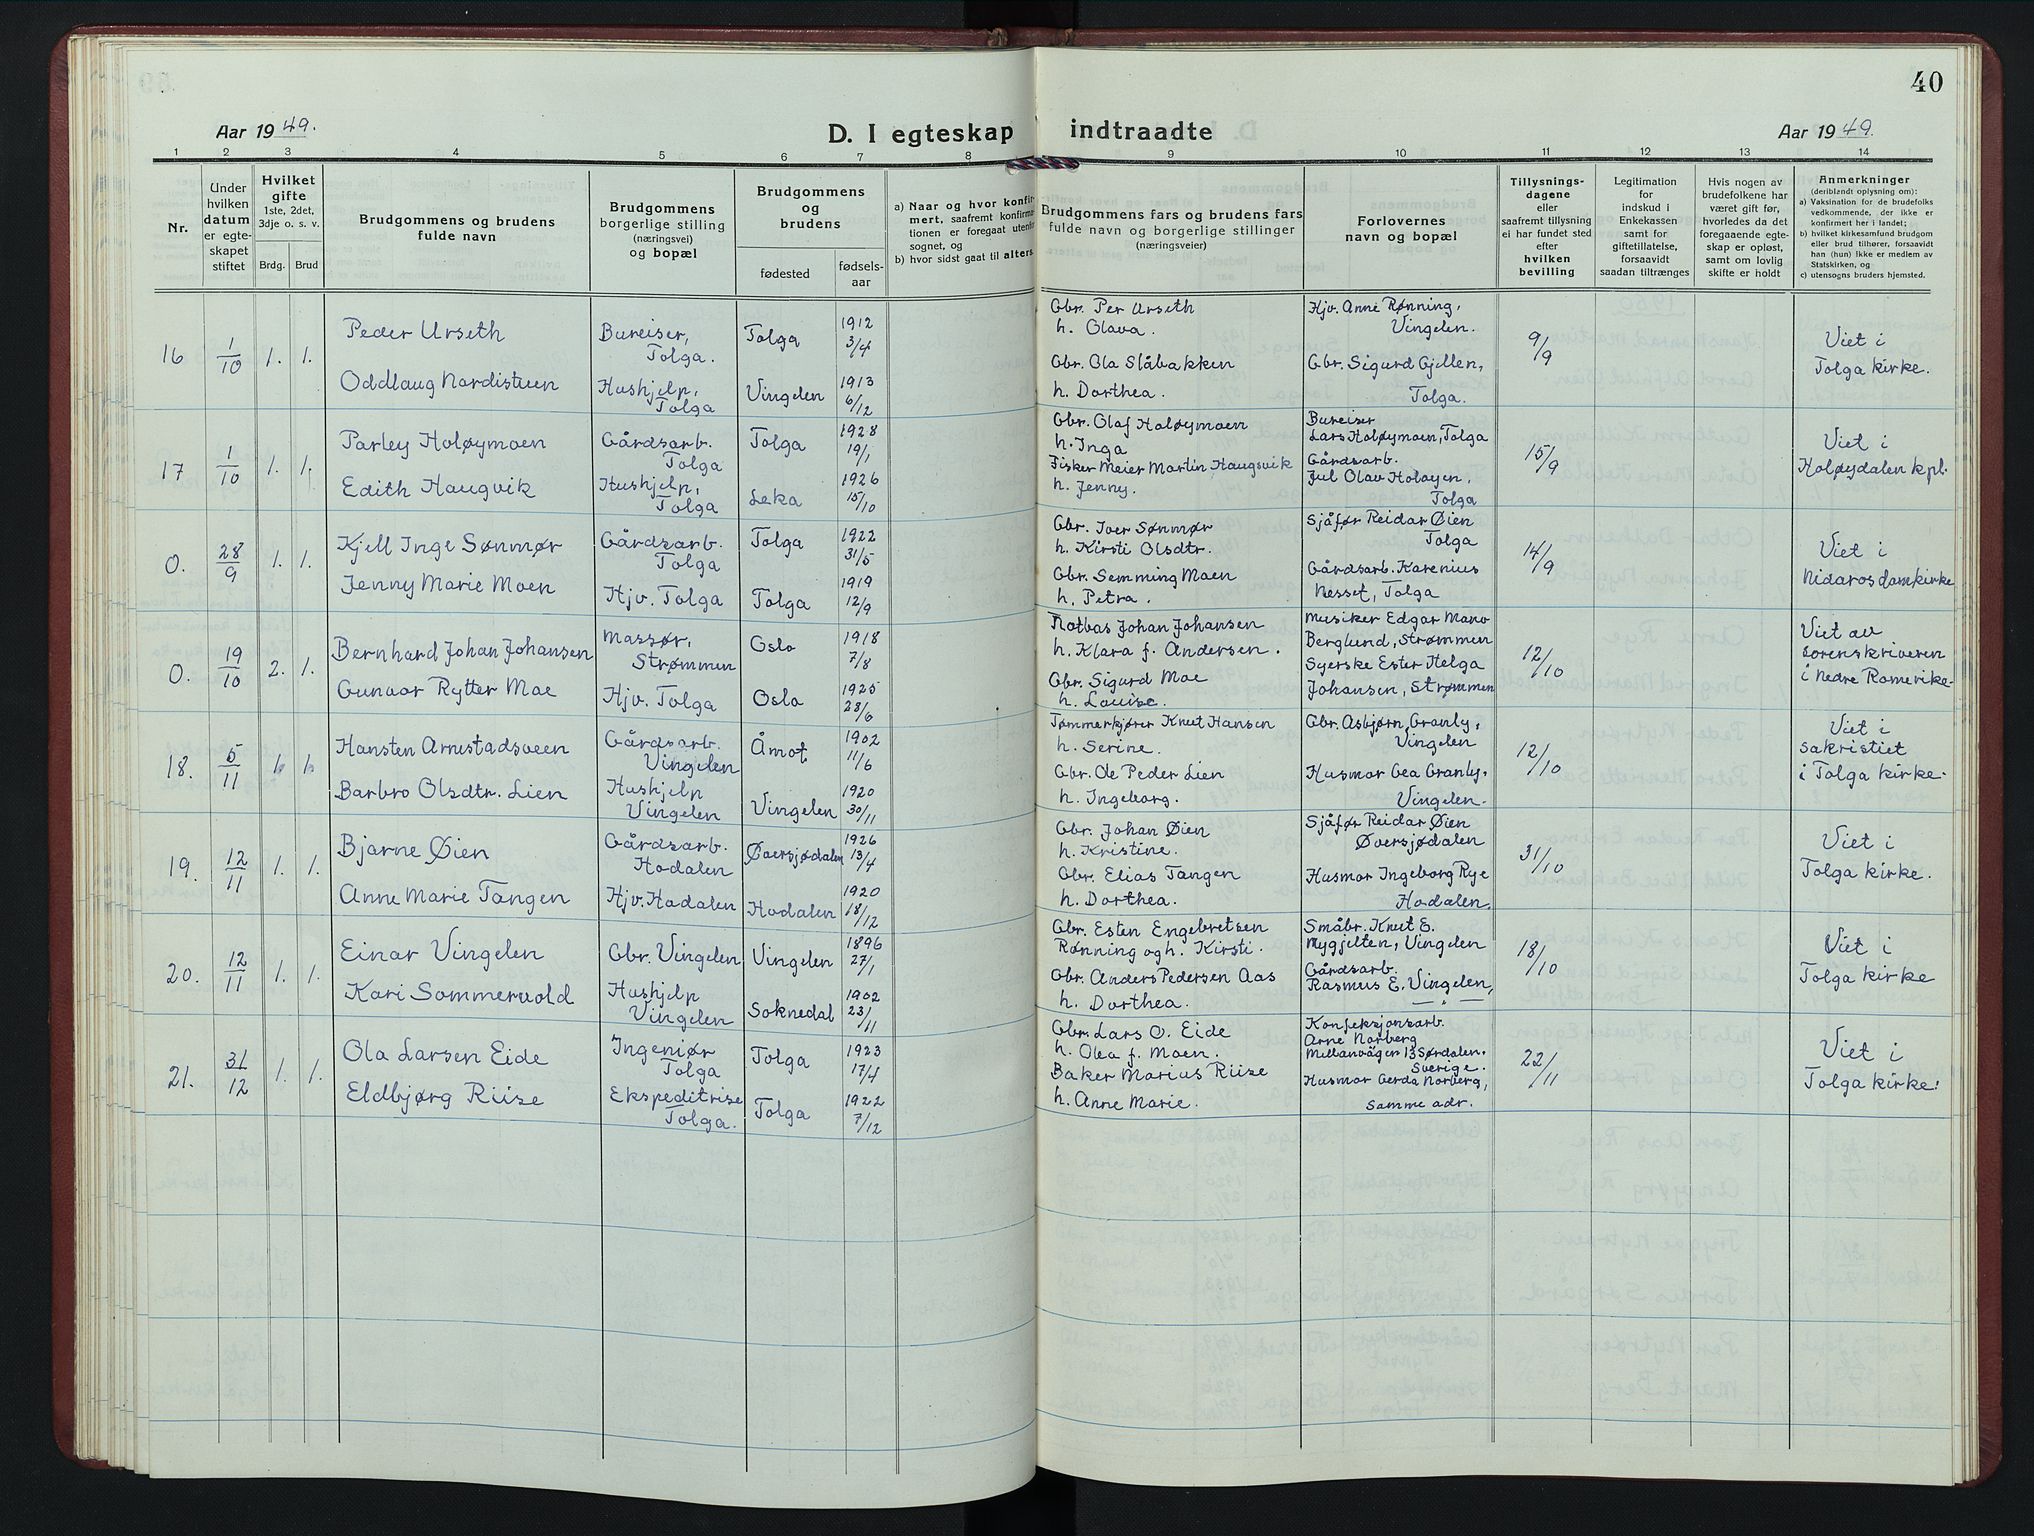 40
Aar 1949.
D. I egteskap indtraadte
Aar 1949.
1 2 3 4 5 6 7 8 9 10 11 12 13 14
Nr.
Under hvilken datum er egteskapet stiftet
Hvilket gifte 1ste, 2det, 3dje o. s. v.
Brdg. Brud
Brudgommens og brudens fulde navn
Brudgommens borgerlige stilling (næringsvei) og bopæl
Brudgommens og brudens
fødested
fødsels-aar
a) Naar og hvor konfirmert, saafremt konfirmationen er foregaat utenfor sognet, og
b) hvor sidst gaat til alters.
Brudgommens fars og brudens fars fulde navn og borgerlige stillinger (næringsveier)
Forlovernes navn og bopæl
Tillysnings-dagene eller saafremt tillysning ei har fundet sted efter hvilken bevilling
Legitimation for indskud i Enkekassen samt for giftetillatelse, forsaavidt saadan tiltrænges
Hvis nogen av brudefolkene har været gift før, hvorledes da det foregaaende egteskap er opløst, samt om lovlig skifte er holdt
Anmerkninger
(deriblandt oplysning om):
a) Vaksination for de brudefolks vedkommende, der ikke er konfirmert her i landet;
b) hvilket kirkesamfund brudgom eller brud tilhører, forsaavidt han (hun) ikke er medlem av Statskirken, og
c) utensogns bruders hjemsted.
16 1/10 1. 1.
Peder Urseth
Bureiser, Tolga.
Tolga
1912 3/4
Oddlaug Nordistuen
Hushjelp, Tolga
Vingelen
1913 6/12
Gbr. Per Urseth
h. Olava.
Gbr. Ola Slåbakken
h. Dorthea.
Hjv. Anne Rønning, Vingelen.
Gbr. Sigurd Gjellen, Tolga.
9/9
Viet i Tolga kirke.
17 1/10 1. 1.
Parley Holøymoen
Gårdsarb. Tolga
Tolga
1928 19/1
Edith Haugvik
Hushjelp, Tolga
Leka
1926 15/10
Gbr. Olaf Holøymoen
h. Inga
Fisker Meier Martin Haugsvik
h. Jenny.
Bureiser Lars Holøymoen, Tolga
Gårdsarb. Jul Olav Holøyen, Tolga
15/9
Viet i Holøydalen kpl.
0. 28/9 1. 1.
Kjell Inge Sønmør
Gårdsarb. Tolga
Tolga
1922 31/5
Jenny Marie Moen
Hjv. Tolga
Tolga
1919 12/9
Gbr. Iver Sønmør
h. Kirsti Olsdtr.
Gbr. Semming Moen
h. Petra.
Sjåfør Reidar Øien Tolga
Gårdsarb. Karenius Nesset, Tolga
14/9
Viet i Nidarosdomkirke
0. 19/10 2. 1.
Bernhard Johan Johansen
Massør, Strømmen
Oslo
1918 7/8
Gunvor Rytter Moe
Hjv. Tolga
Oslo
1925 28/6
Johan Johansen
h. Klara f. Andersen.
Gbr. Sigurd Moe
h. Louise.
Musiker Edgar Mano Berglund, Strømmen
Syerske Ester Helga Johansen, Strømmen
12/10
Viet av sorenskriveren i Nedre Romerike.
18. 5/11 1. 1.
Hansten Arnestadsveen
Gårdsarb. Vingelen
Åmot
1902 11/6
Barbro Olsdtr. Lien
Hushjelp Vingelen
Vingelen
1920 30/11
Tømmerkjører Knut Hansen
h. Serine.
Gbr. Ole Peder Lien
h. Ingeborg.
Gbr. Asbjørn Granly, Vingelen
Husmor Gea Granly, Vingelen.
12/10
Viet i sakristiet i Tolga kirke.
19. 12/11 1. 1.
Bjarne Øien
Gårdsarb. Hodalen
Øversjødalen
1926 13/4
Anne Marie Tangen
Hjv. Hodalen
Hodalen
1920 18/12
Gbr. Johan Øien
h. Kristine.
Gbr. Elias Tangen
h. Dorthea.
Sjåfør Reidar Øien Øversjødalen
Husmor Ingeborg Rye Hodalen.
31/10
Viet i Tolga kirke.
20. 12/11 1. 1.
Einar Vingelen
Gbr. Vingelen
Vingelen
1896 27/1
Kari Sommervold
Hushjelp Vingelen
Soknedal
1902 23/11
Gbr. Esten Engebretsen Rønning og h. Kirsti.
Gbr. Anders Pedersen Aas
h. Dorthea.
Småbr. Knut E. Nygjelten, Vingelen
Gårdsarb. Rasmus E. Vingelen,
18/10
Viet i Tolga kirke
21. 31/12 1. 1.
Ola Larsen Eide
Ingeniør Tolga
Tolga
1923 17/4
Eldbjørg Riise
Ekspeditrise Tolga.
Tolga
1922 7/12
Gbr. Lars O. Eide
h. Olea f. Moen.
Baker Marius Riise
h. Anne Marie.
Konfeksjonsarb. Arne Norberg
Mellanvägen 13 Sørdalen. Sverige.
Husmor Gerda Norberg, samme adr.
22/11
Viet i Tolga kirke.